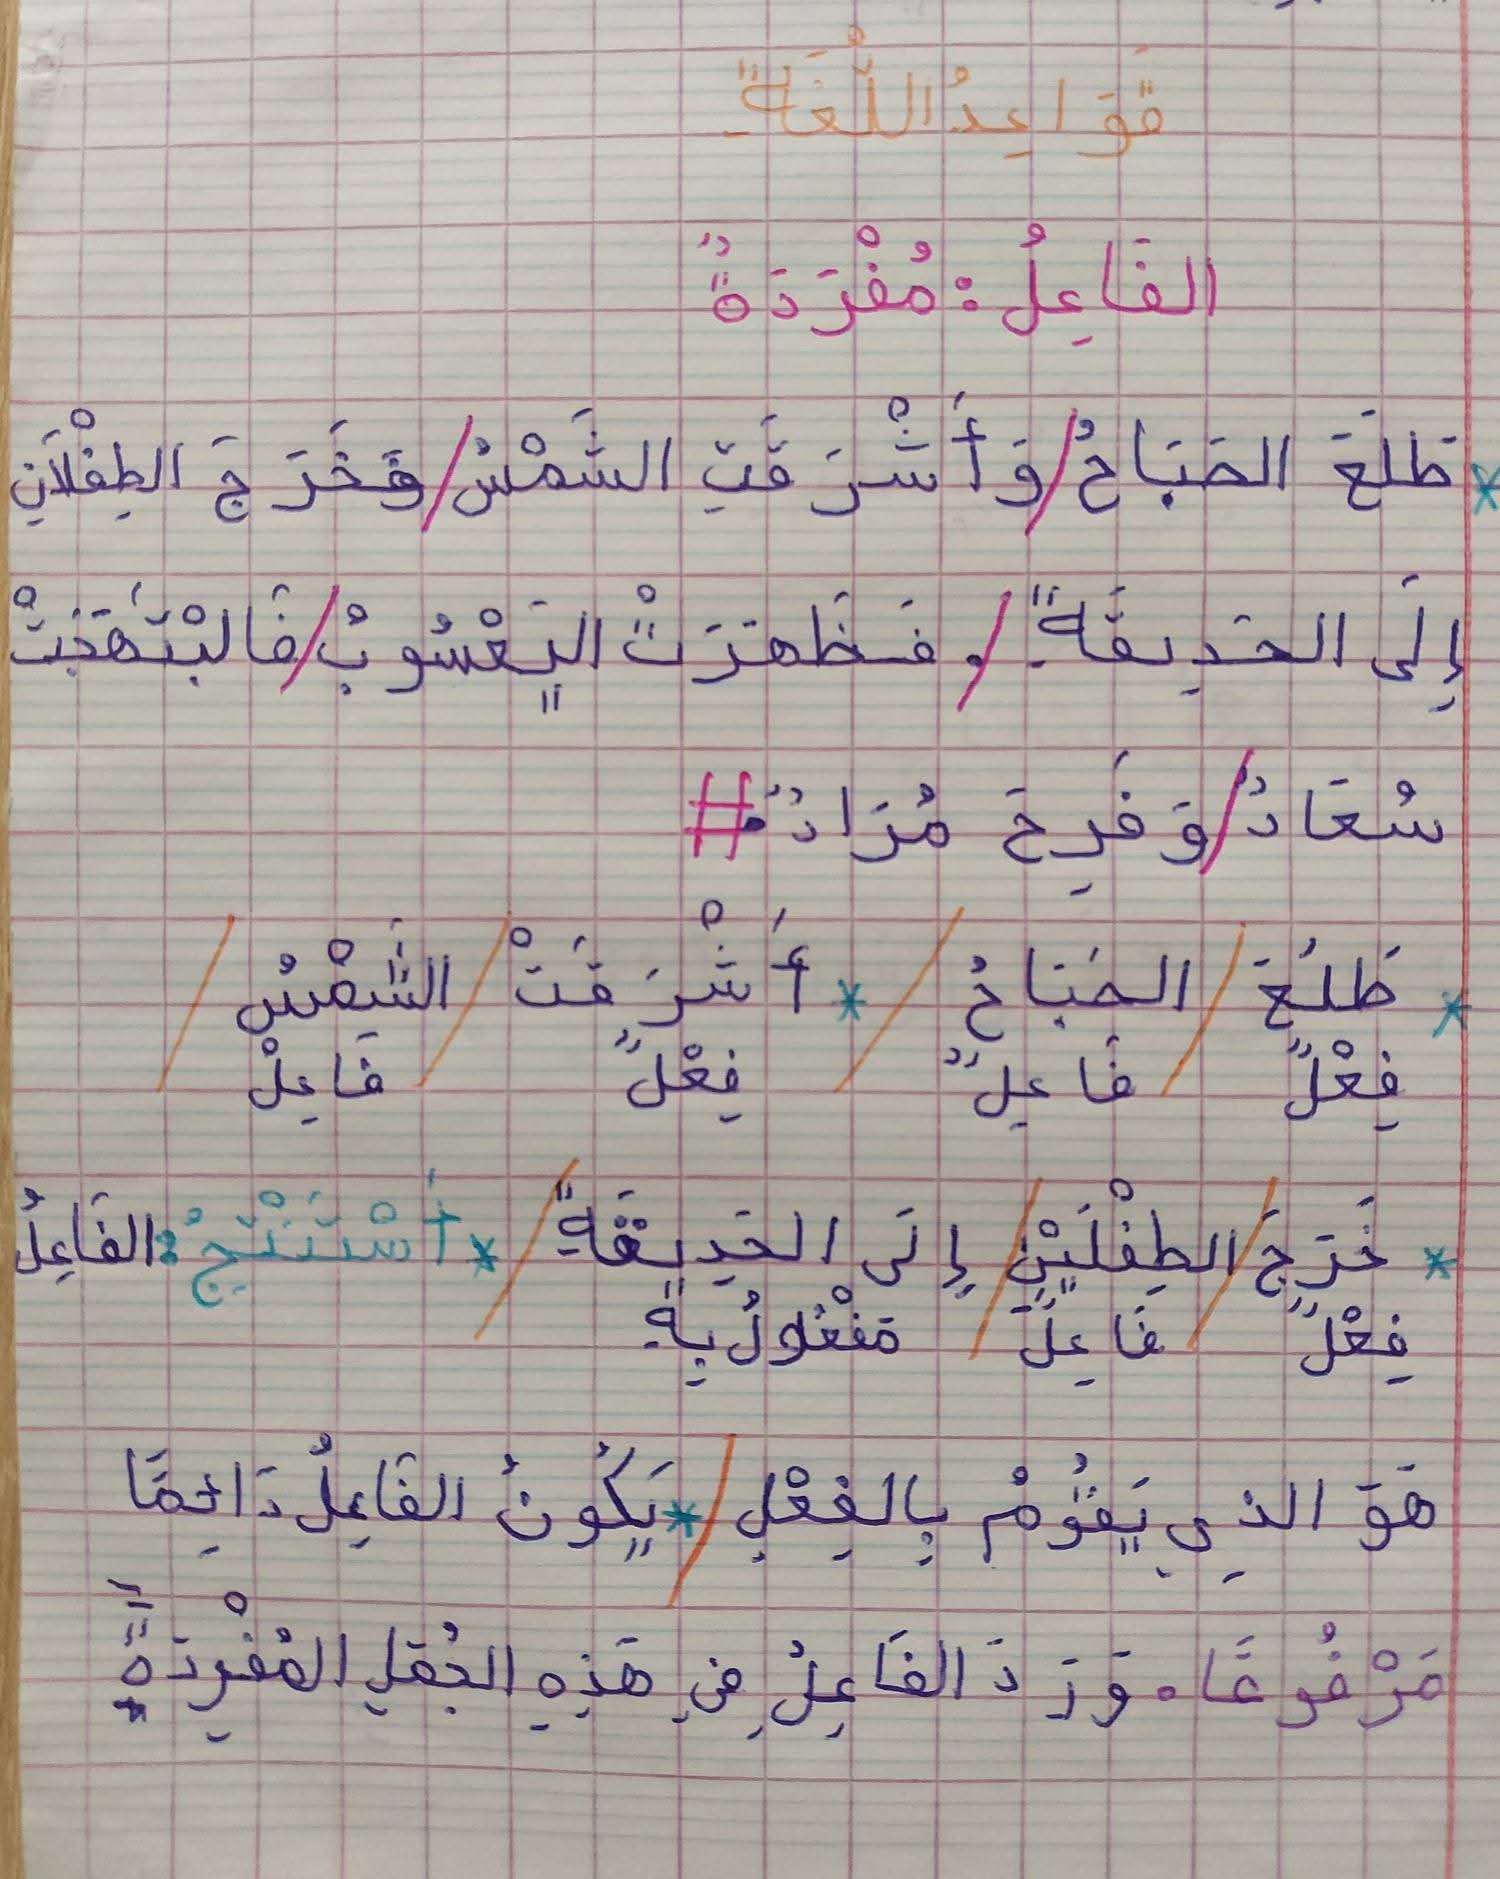 قَوَاعِدُ اللُّغَةِ
الفَاعِلُ : مُفْرَدَةٌ
* طَلَعَ الصَبَاحُ / وَ أَشْرَقَتِ الشَمْسُ / وَخَرَجَ الطِفْلَانِ
إِلَى الحَدِيقَةِ / . فَظَهَرَتْ اليَعْسُوبُ / فَالبْتَهَجَتْ
سُعَادُ / وَ فَرِحَ مُرَادٌ . #
* طَلَعَ / الصَبَاحُ / * أَشْرَقَتْ / الشَمْسُ /
فِعْلٌ / فَاعِلٌ / فِعْلٌ / فَاعِلْ /
* خَرَجَ / الطِفْلَيْنِ / إِلَى الحَدِيقَةِ / * أَسْتَنْتِجُ : الفَاعِلُ
فِعْلٌ / فَاعِلَ / مَفْعُولُ بِهِ
هَوَ الذِي يَقُومُ بِالفِعْلِ / * يَكُونُ الفَاعِلُ دَائِمًا
مَرْفُوعًا . وَرَدَ الفَاعِلُ فِي هَذِهِ الجُمَلِ المُفْرِدَةً